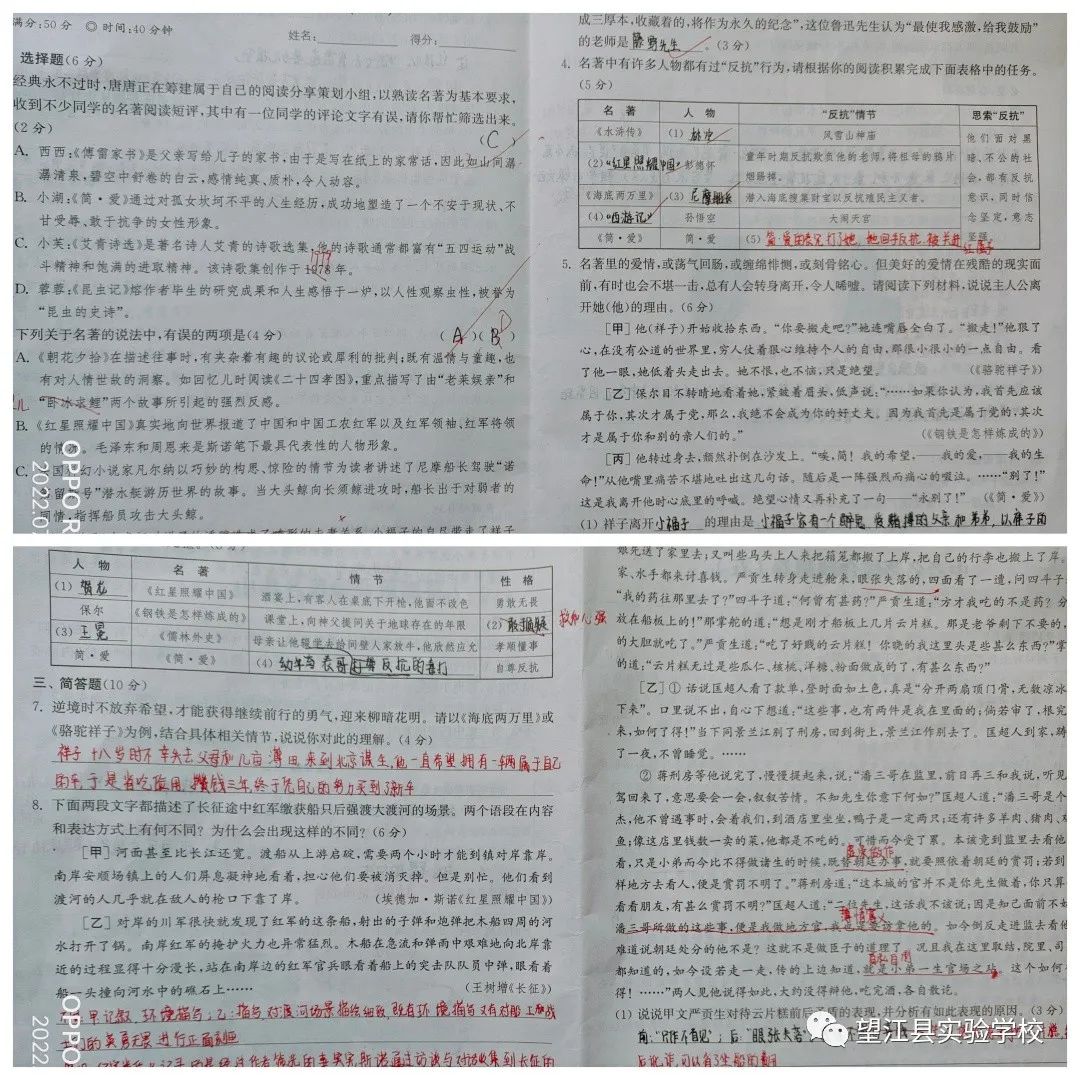 满分:50分 ◎时间:40分钟
姓名: 得分:
选择题(6分)
经典永不过时,唐唐正在筹建属于自己的阅读分享策划小组,以熟读名著为基本要求,
收到不少同学的名著阅读短评,其中有一位同学的评论文字有误,请你帮忙筛选出来。
(2分) ( C )
A. 西西:《傅雷家书》是父亲写给儿子的家书,由于是写在纸上的家常话,因此如山间潺
潺清泉,碧空中舒卷的白云,感情纯真、质朴,令人动容。
B. 小湖:《简·爱》通过对孤女坎坷不平的人生经历,成功地塑造了一个不安于现状、不
甘受辱、敢于抗争的女性形象。
C. 小芙:《艾青诗选》是著名诗人艾青的诗歌选集,他的诗歌通常都富有“五四运动”战
斗精神和饱满的进取精神。该诗歌集创作于1978年。
1979
D. 蓉蓉:《昆虫记》熔作者毕生的研究成果和人生感悟于一炉,以人性观察虫性,被誉为
“昆虫的史诗”。
下列关于名著的说法中,有误的两项是(4分) ( A )( B )
D
A. 《朝花夕拾》在描述往事时,有夹杂着有趣的议论或犀利的批判;既有温情与童趣,也
有对人情世故的洞察。如回忆儿时阅读《二十四孝图》,重点描写了由“老莱娱亲”和
“卧冰求鲤”两个故事所引起的强烈反感。
B. 《红星照耀中国》真实地向世界报道了中国和中国工农红军以及红军领袖、红军将领
的情况。毛泽东和周恩来是斯诺笔下最具代表性的人物形象。
C. 国 幻小说家凡尔纳以巧妙的构思、惊险的情节为读者讲述了尼摩船长驾驶“诺
号”潜水艇游历世界的故事。当大头鲸向长须鲸进攻时,船长出于对弱者的
同情,指挥船员攻击大头鲸。
OPPO R
2022.0
成三厚本,收藏着的,将作为永久的纪念”,这位鲁迅先生认为“最使我感激,给我鼓励”
的老师是 藤野先生 。(3分)
4. 名著中有许多人物都有过“反抗”行为,请根据你的阅读积累完成下面表格中的任务。
(5分)
名 著 人 物 “反抗”情节 思索“反抗”
《水浒传》 (1) 林冲 风雪山神庙 他们面对黑
(2)“红星照耀中国” 彭德怀 童年时期反抗欺负他的老师,将祖母的鸦片 暗、不公的社
烟踢掉。 会,都有反抗
《海底两万里》 (3) 尼摩船长 潜入海底搜集财宝以反抗殖民主义者。 意识,同时信
(4)“西游记” 孙悟空 大闹天宫 念坚定,意志
《简·爱》 简·爱 (5) 坚强。
5. 名著里的爱情,或荡气回肠,或缠绵悱恻,或刻骨铭心。但美好的爱情在残酷的现实面
前,有时也会不堪一击,总有人会转身离开,令人唏嘘。请阅读下列材料,说说主人公离
开她(他)的理由。(6分)
[甲]他(祥子)开始收拾东西。“你要搬走吧?”她连嘴唇全白了。“搬走!”他狠了
心,在没有公道的世界里,穷人仗着狠心维持个人的自由,那很小很小的一点自由。看
了他一眼,她低着头走出去。她不恨,也不恼,只是绝望。 (《骆驼祥子》)
[乙]保尔目不转睛地看着她,紧皱着眉头,低声说:“……如果你认为,我首先应该
属于你,其次才属于党,那么,我绝不会成为你的好丈夫。因为我首先是属于党的,其次
才是属于你和别的亲人们的。” (《钢铁是怎样炼成的》)
[丙]他转过身去,颓然扑倒在沙发上。“唉,简!我的希望,——我的爱,——我的生
命!”从他嘴里痛苦不堪地吐出这几句话。随后是一阵强烈而痛心的啜泣。……“别了!”
这是我离开他时心底里的呼喊。绝望心情又再补充了一句——“永别了!” (《简·爱》)
(1) 祥子离开 小福子 的理由是 小福子家有一个酗酒
人 物 名 著 情 节 性 格
(1) 贺龙 《红星照耀中国》 酒宴上,有客人在桌底下开枪,他面不改色 勇敢无畏
保尔 《钢铁是怎样炼成的》 课堂上,向神父提问关于地球存在的年限 (2)
(3) 王冕 《儒林外史》 母亲让他辍学去给间壁人家放牛,他欣然应允 孝顺懂事
简·爱 《简·爱》 (4) 幼年与表哥 反抗 自尊反抗
三、简答题(10分)
7. 逆境时不放弃希望,才能获得继续前行的勇气,迎来柳暗花明。请以《海底两万里》或
《骆驼祥子》为例,结合具体相关情节,说说你对此的理解。(4分)
祥子十八岁时不幸失去父母和几亩薄田,来到北京谋生,他一直希望拥有一辆属于自己
的车,于是省吃俭用,攒钱三年终于凭自己的努力买到了新车
8. 下面两段文字都描述了长征途中红军缴获船只后强渡大渡河的场景。两个语段在内容
和表达方式上有何不同?为什么会出现这样的不同?(6分)
[甲]河面甚至比长江还宽。渡船从上游启碇,需要两个小时才能到镇对岸靠岸。
南岸安顺场镇上的人们屏息凝神地看着,担心他们要被消灭掉。但是别忙。他们看到
渡河的人几乎就在敌人的枪口下靠了岸。 (埃德加·斯诺《红星照耀中国》)
[乙]对岸的川军很快就发现了红军的这条船,射出的子弹和炮弹把木船四周的河
水打开了锅。南岸红军的掩护火力也异常猛烈。木船在急流和弹雨中艰难地向北岸靠
近的过程显得十分漫长,站在南岸边的红军官兵眼看着船上的突击队队员中弹,眼看着
船一头撞向河水中的礁石上…… (王树增《长征》)
OPPO
2022
娘先送了家里去;又叫些马头上人来把箱笼都搬了上岸,把自己的行李也搬上了岸。
家、水手都来讨喜钱。严贡生转身走进舱来,眼张失落的,四面看了一遭,问四斗子:
“我的药往那里去了?”四斗子道:“何曾有甚药?”严贡生道:“方才我吃的不是药?分
放在船板上的!”那掌舵的道:“想是刚才船板上几片云片糕。那是老爷剩下不要的,
的大胆就吃了。”严贡生道:“吃了好贱的云片糕!你晓的我这里头是些甚么东西?”掌
的道:“云片糕无过是些瓜仁、核桃、洋糖、粉面做成的了,有甚么东西?”
[乙]① 话说匡超人看了款单,登时面如土色,真是“分开两扇顶门骨,无数凉冰
下来”。口里说不出,自心下想道:“这些事,也有两件是我在里面的;倘若审了,根究
来,如何了得!”当下同景兰江别了刑房,回到街上,景兰江作别去了。匡超人到家,踌
了一夜,不曾睡觉。……
② 蒋刑房等他说完了,慢慢提起来,说:“潘三哥在监里,前日再三和我说,听见
驾回来了,意思要会一会,叙叙苦情。不知先生你意下何如?”匡超人道:“潘三哥是个
杰,他不曾遇事时,会着我们,到酒店里坐坐,鸭子是一定两只;还有许多羊肉、猪肉、
鱼,像这店里钱数一卖的菜,他都是不吃的。可惜而今受了累。本该竟到监里去看他
看,只是小弟而今比不得做诸生的时候,既替朝廷办事,就要照依着朝廷的赏罚;若到
样地方去看人,便是赏罚不明了。”蒋刑房道:“这本城的官并不是你先生做着,你只算
看看朋友,有甚么赏罚不明?”匡超人道:“二位先生,这话我不该说;因是知己面前不妨
潘三哥所做的这些事,便是我做地方官,我也是要访拿他的。如今倒反走进监去看他
难道说朝廷处分的他不是?这就不是做臣子的道理了。况且我在这里取结,院里、司
都知道的,如今设若走一走,传的上边知道,就是小弟一生官场之玷。这个如何
得!……”两人见他说得如此,大约没得辩他,吃完酒,各自散讫。
(1) 说说甲文严贡生对待云片糕前后 的表现,并分析有如此表现的原因。(3分)
望江县实验学校